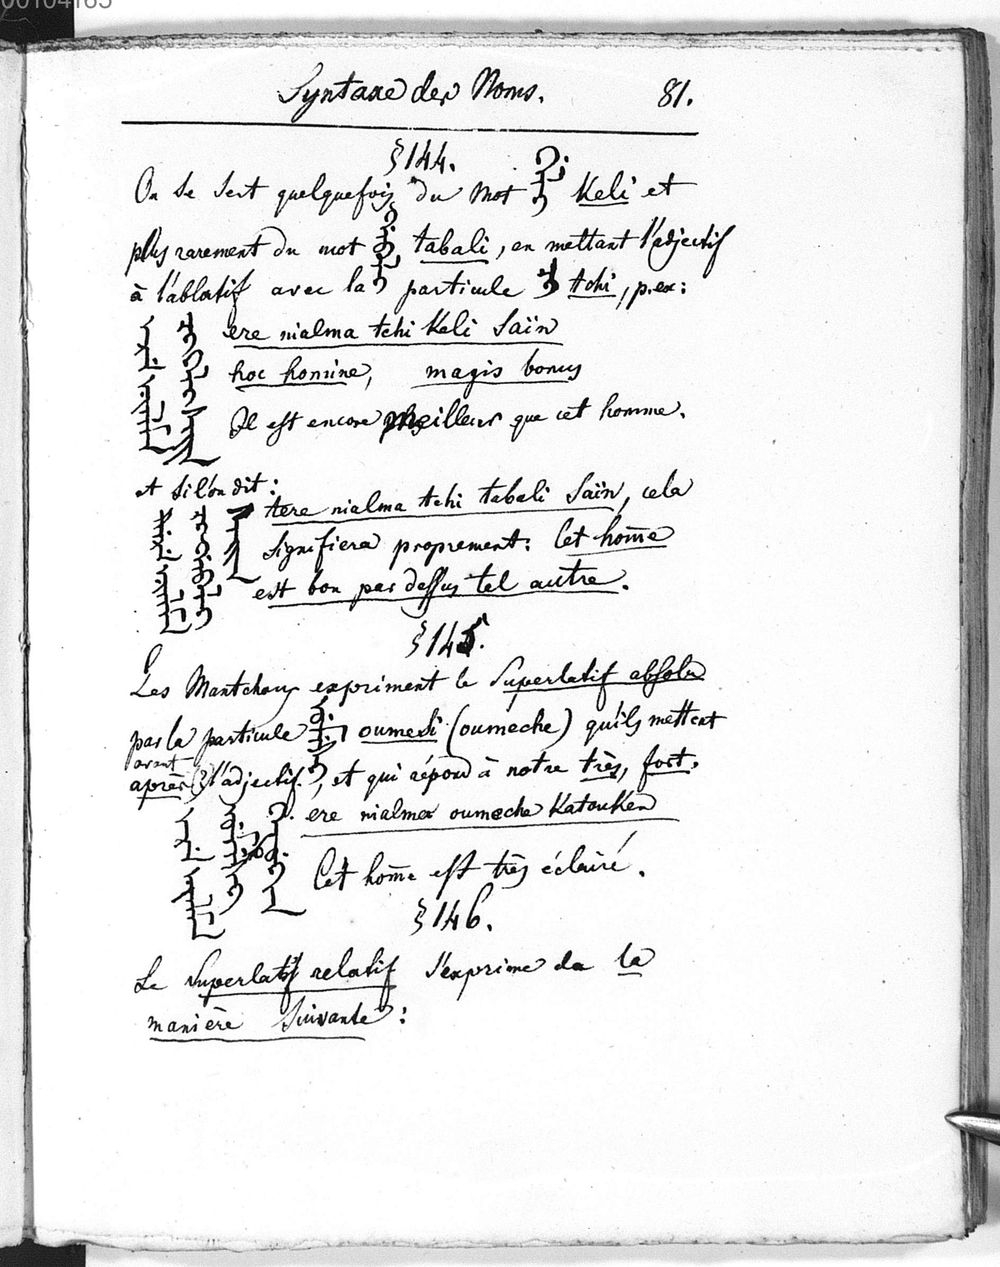 00104165
Syntaxe des Noms. 81.
§144.
On se sert quelquefois du mot Keli et
plus rarement du mot tabali, en mettant l'adjectif
à l'ablatif avec la particule tchi, p.ex:
ere nialma tchi Keli Saïn
hoc homine, magis bonus
Il est encore meilleur que cet homme.
et si l'on dit:
tere nialma tchi tabali Saïn, cela
signifiera proprement: Cet hom̄e
est bon par dessus tel autre.
§145.
Les Mantchoux expriment le Superlatif absolu
par la particule oumesi (oumeche) qu'ils mettent
avant
après (?) l'adjectif, et qui répond à notre très, fort.
ere nialma oumeche Katouken
Cet hom̄e est très éclairé.
§146.
Le Superlatif relatif s'exprime de la
manière suivante: